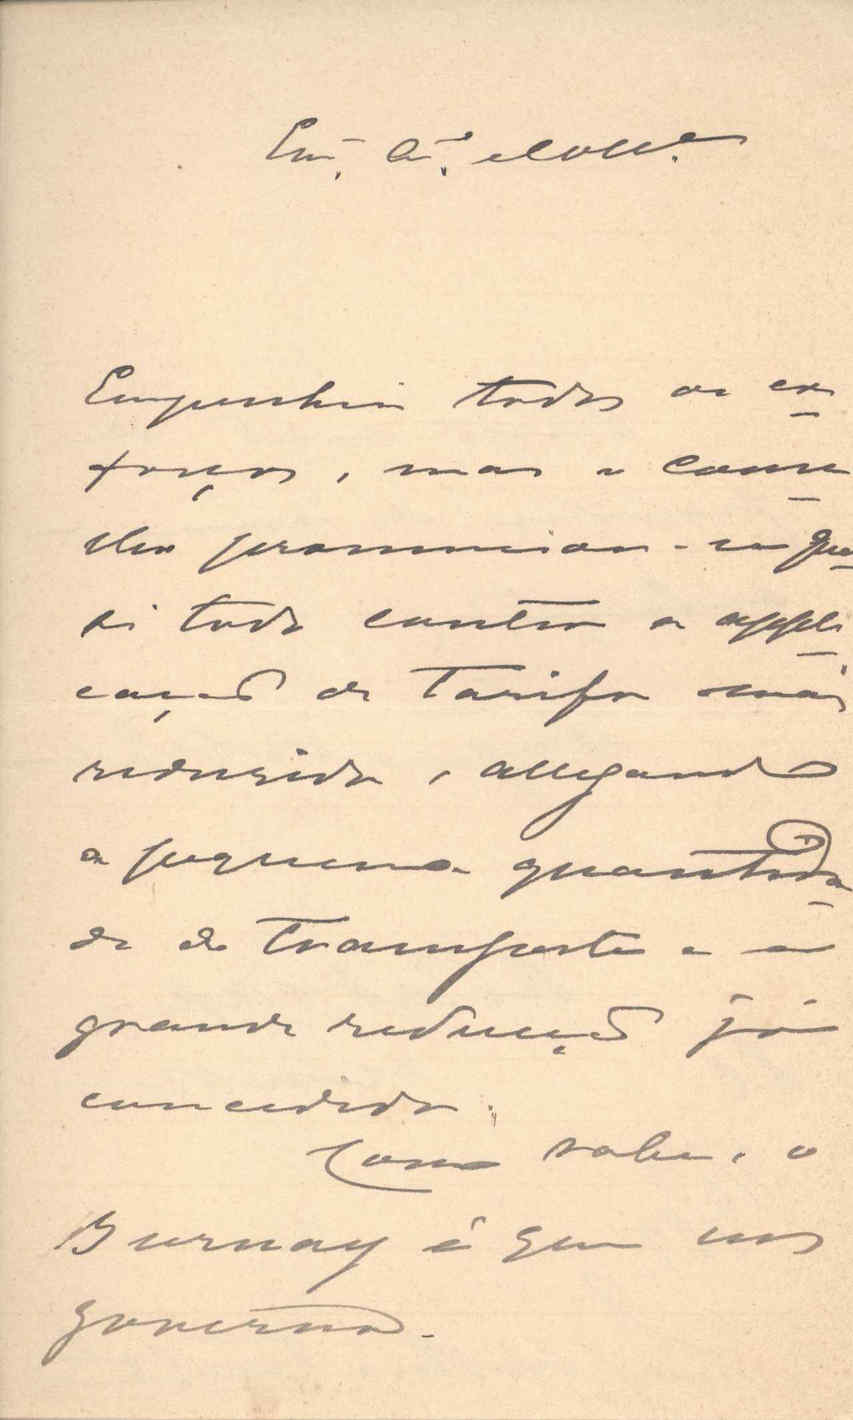 Exm. Am.º e Coll.ª
Empenhei todos os es-
forços, mas o conse-
lho pronunciou-se qua-
si todo contra a appli-
cação de tarifa mais
reduzida, allegando
a pequena quantida-
de de transporte e a
grande reducção já
concedida.
Como sabe, o
Burnay é quem nos
governa.